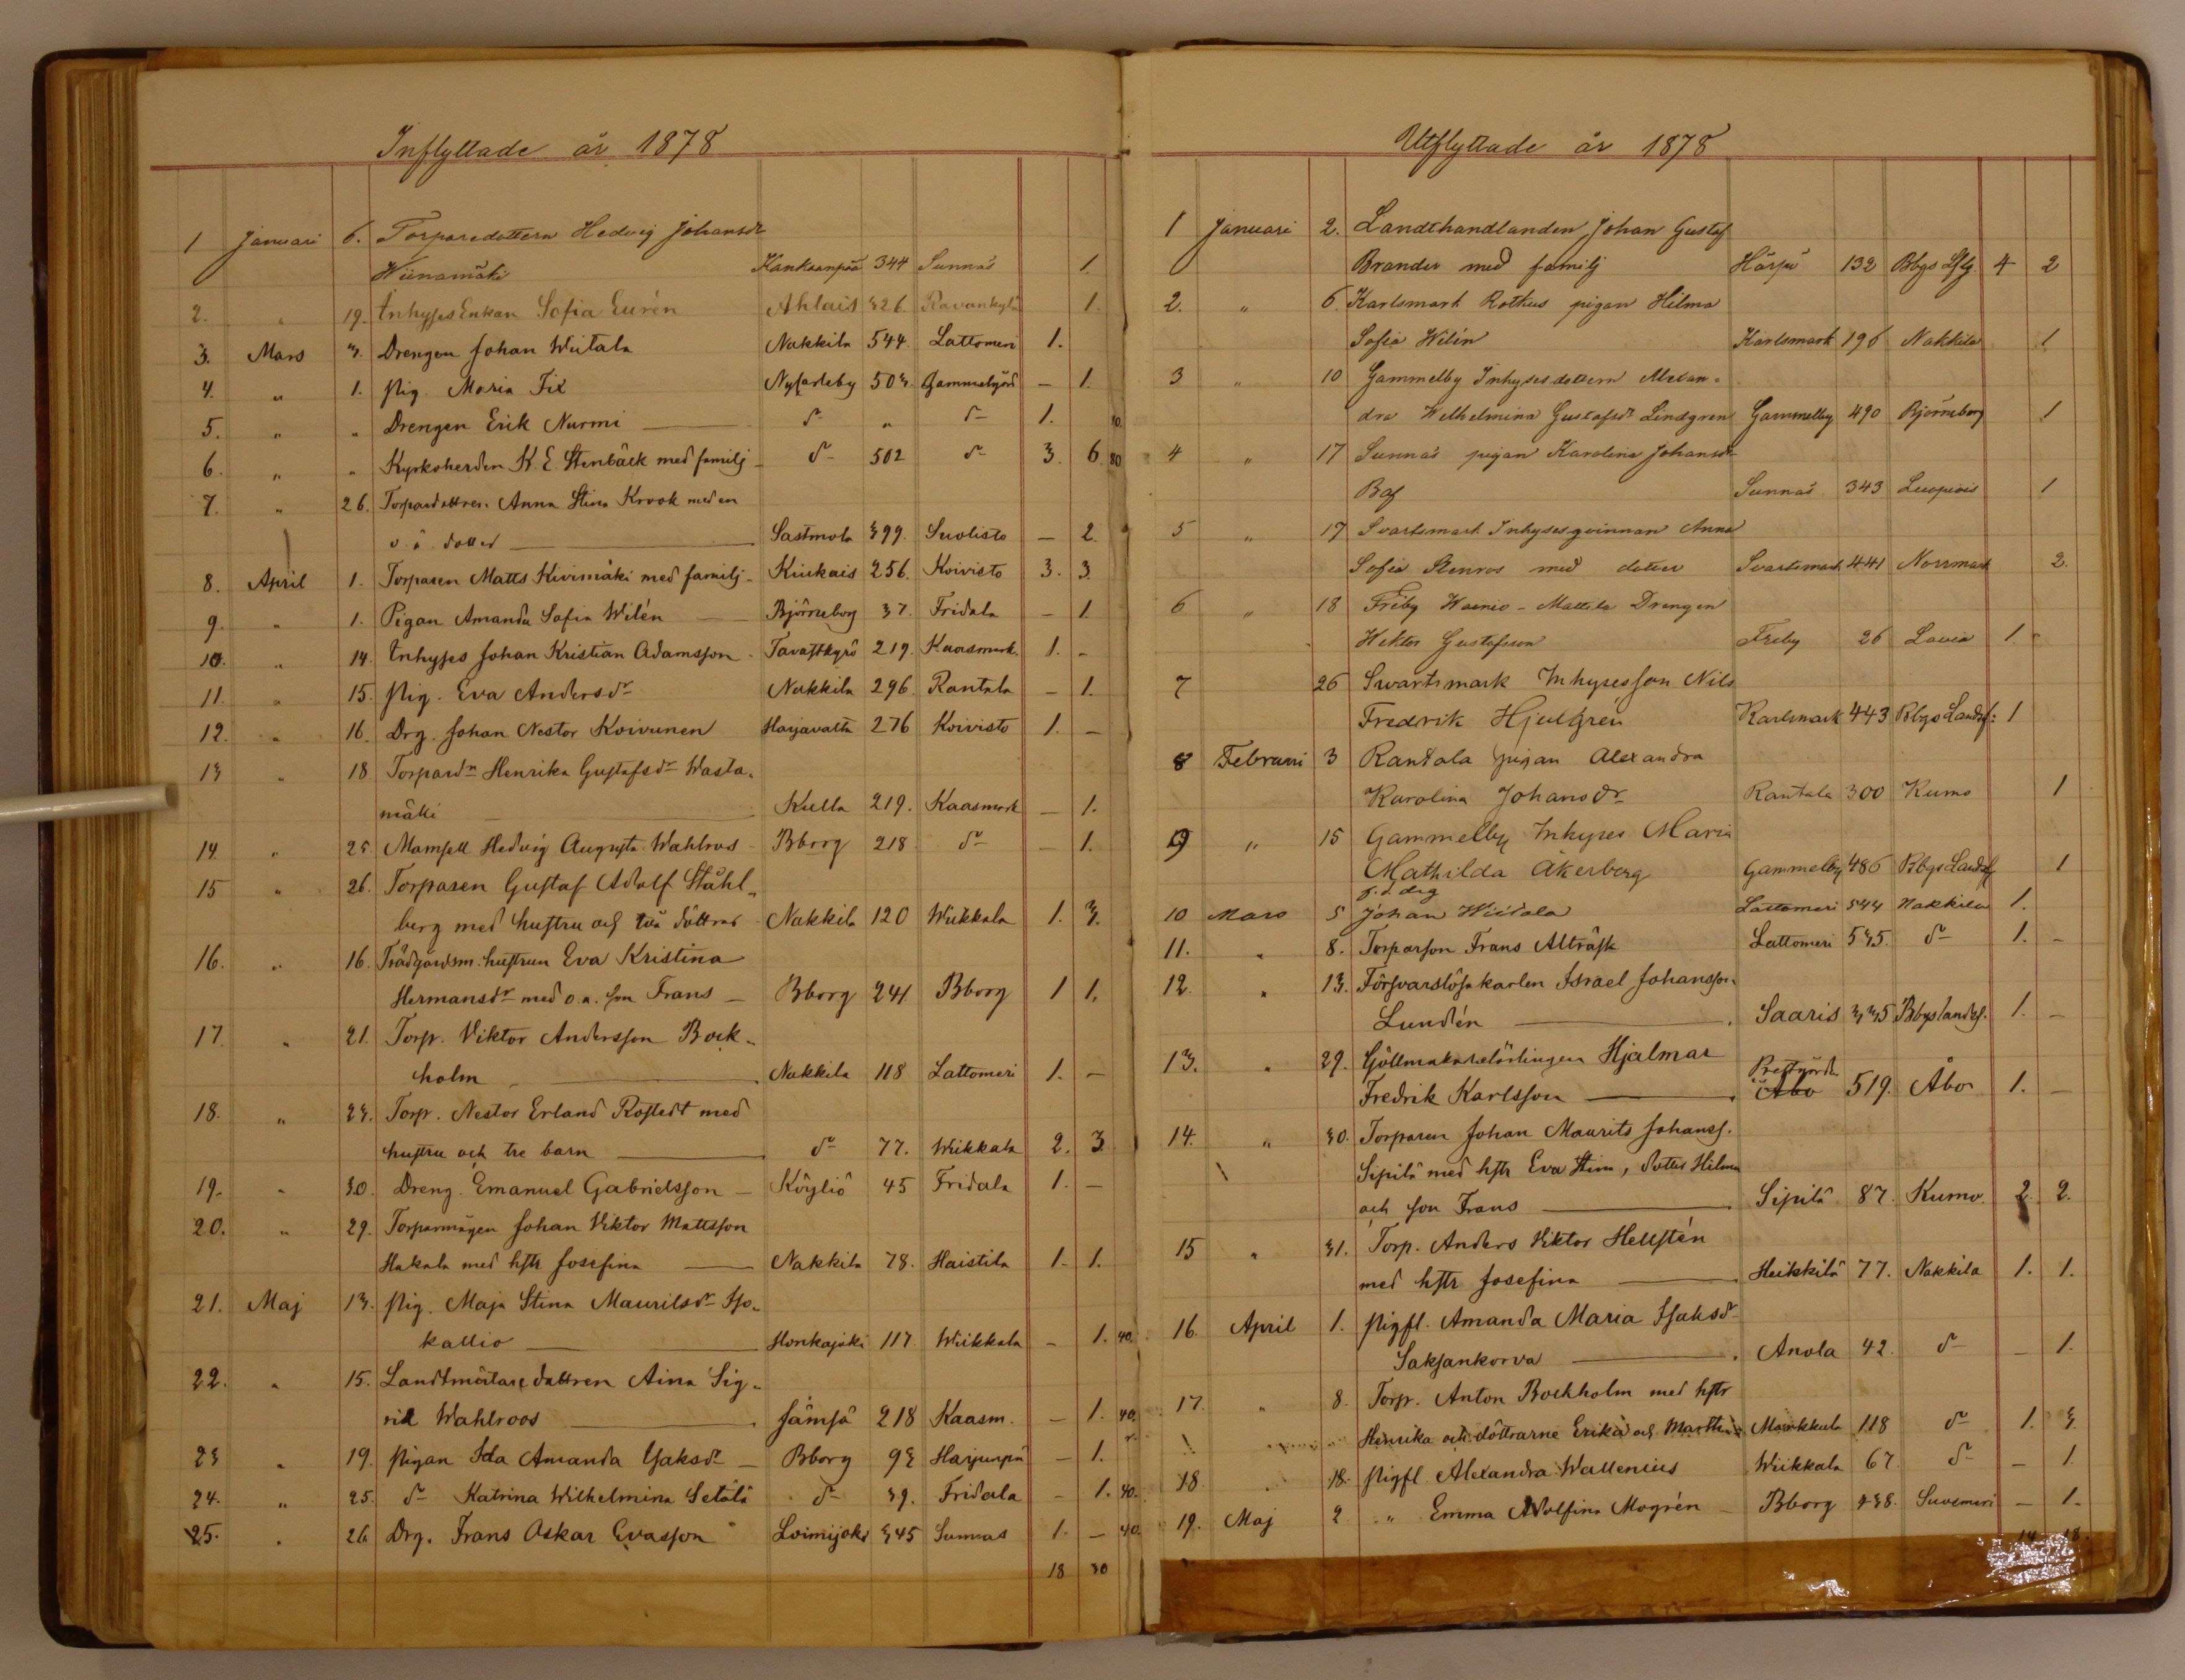 Inflyttade år 1878
1 Januari 6. Torparedottern Hedvig Johansdr
Wiinamäki Kankaanpää 344 Sunnäs 1.
2. " 19. Inhyses Enkan Sofia Eurén Ahlais 326 Ravankylä 1.
3. Mars 3. Drengen Johan Wiitala Nakkila 544 Lattomeri 1.
4. " 1. Pig. Maria Fix Nykarleby 503. Gammelgård — 1.
5. " " Drengen Erik Nurmi — dr " dr 1. 80.
6. " " Kyrkoherden K. E. Stenbäck med familj dr 502 dr 3. 6. 80
7. " 26. Torparedottren Anna Stina Krook med en
o. ä. dotter — Sastmola 399. Suolisto — 2.
8. April 1. Torparen Matts Kivimäki med familj Kiukais 256. Koivisto 3. 3.
9. " 1. Pigan Amanda Sofia Wilén — Björneborg 37. Fridala — 1.
10. " 14. Inhyses Johan Kristian Adamsson Tavastkyrö 219. Kaasmark. 1. -
11. " 15. Pig. Eva Andersdr Nakkila 296. Rantala — 1.
12. " 16. Drg. Johan Nestor Koivunen Harjavalta 276 Koivisto 1. —
13 " 18 Torpardn Henrika Gustafsdr Wasta-
mäki — Kulla 219. Kaasmark — 1.
14. " 25. Mamsell Hedvig Augusta Wahlros Bborg 218 dr — 1.
15 " 26. Torparen Gustaf Adolf Ståhl-
berg med hustru och två döttrar Nakkila 120 Wiikkala 1. 3.
16. " 16. Trädgårdsm. hustrun Eva Kristina
Hermansdr med o. ä. son Frans — Bborg 241 Bborg 1 1.
17. " 21. Torp. Viktor Andersson Bock-
holm — Nakkila 118 Lattomeri 1. —
18. " 23. Torp. Nestor Erland Rostedt med
hustru och tre barn — dr 77. Wiikkala 2. 3.
19. " 30. Dreng. Emanuel Gabrielsson — Köyliö 45 Fridala 1. —
20. " 29. Torparmågen Johan Viktor Mattsson
Hakala med hstr Josefina — Nakkila 78. Haistila 1. 1.
21. Maj 13. Pig. Maja Stina Mauritsdr Iso-
kallio — Honkajoki 117 Wiikkala — 1. 40.
22. " 15. Landtmätare dottren Aina Sig-
rid Wahlroos — Jämsä 218 Kaasm. — 1. 40.
23 " 19. Pigan Ida Amanda Isaksdr — Bborg 93 Harjunpä — 1.
24. " 25. dr Katrina Wilhelmina Setälä dr 39. Fridala — 1. 40.
25. " 26. Drg. Frans Oskar Evasson Loimijoki 345 Sunnas 1. — 40.
18 30
Utflyttade år 1878
1 Januari 2. Landthandlanden Johan Gustaf
Brander med familj Härpö 132 Bbgs Lfg. 4 2
2. " 6. Karlsmark Rothus pigan Hilma
Sofia Wilén Karlsmark 196 Nakkila 1
3 " 10 Gammelby Inhysesdottern Alexan-
dra Wilhelmina Gustafsdr Lindgren Gammelby 490 Björneborg 1
4 " 17 Sunnäs pigan Karolina Johansdr
Sunnäs 343 Luvia 1
5 " 17 Svartsmark Inhysesqvinnan Anna
Sofia Stenros med dotter Svartsmark 441 Norrmark 2.
6 " 18 Friby Wainio-Mattila Drengen
Hektor Gustafsson Friby 26 Lavia 1.
7 26 Swartsmark Inhysesson Nils
Fredrik Hjulgren Karlsmark 443 Bbgs Landsf: 1
8 Februari 3 Rantala pigan Alexandra
Karolina Johansdr Rantala 300 Kumo 1
9 " 15 Gammelby Inhyses Maria
Mathilda Åkerberg Gammelby 486 Bbgs Landsf 1
f. d. drg
10 Mars 5 Johan Wiitala Lattomeri 544 Nakkila 1.
11. " 8. Torparson Frans Alträsk Lattomeri 535. dr 1. -
12. " 13. Försvarslösa karlen Israel Johansson
Lundén — Saaris 335 Bbgs landsf. 1. —
13. " 29. Gjällmakarelärlingen Hjalmar
Prestgård
Fredrik Karlsson — Åbo 519. Åbo 1. —
14. " 30. Torparen Johan Maurits Johanss.
Sipilä med hstr Eva Stina, dotter Hilma
och son Frans — Sipilä 87. Kumo. 2. 2.
15 " 31. Torp. Anders Viktor Hellstén
med hstr Josefina — Heikkilä 77. Nakkila 1. 1.
16 April 1. Pigfl. Amanda Maria Isaksdr
Saksankorva — Anola 42. dr — 1.
17. " 8. Torp. Anton Bockholm med hstr
Henrika och döttrarne Erika och Martha Masikkula 118 dr 1. 3.
18 " 18. Pigfl Alexandra Wallenius Wiikkala 67. dr — 1.
19. Maj 2 " Emma Adolfina Mogrén — Bborg 438. Suosmeri — 1.
14 18.